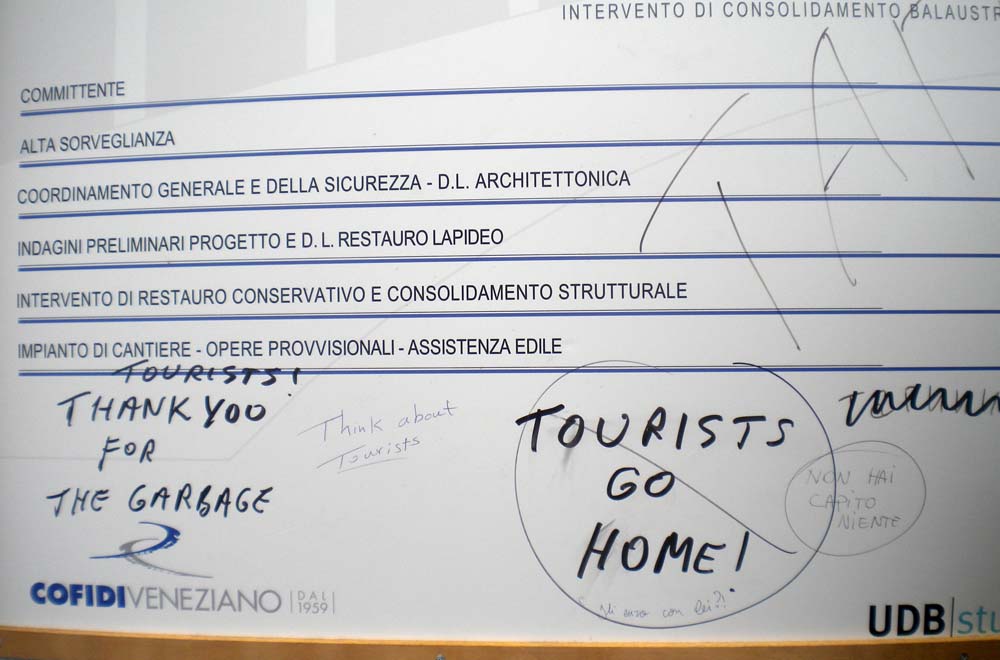 INTERVENTO DI CONSOLIDAMENTO BALAUSTR
COMMITTENTE
ALTA SORVEGLIANZA
COORDINAMENTO GENERALE E DELLA SICUREZZA - D.L. ARCHITETTONICA
INDAGINI PRELIMINARI PROGETTO E D. L. RESTAURO LAPIDEO
INTERVENTO DI RESTAURO CONSERVATIVO E CONSOLIDAMENTO STRUTTURALE
IMPIANTO DI CANTIERE - OPERE PROVVISIONALI - ASSISTENZA EDILE
TOURISTS!
THANK YOO
FOR
THE GARBAGE
Think about
Tourists
TOURISTS
GO
HOME!
NON HAI
CAPITO
NIENTE
con lei?!
COFIDIVENEZIANO DAL 1959
UDB stu